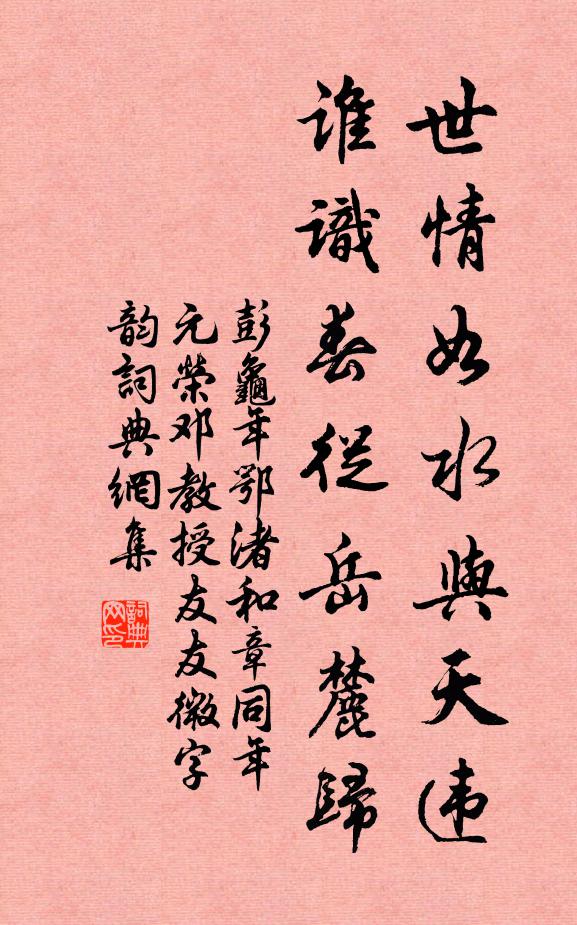 世情如水與天违
谁識春從岳麓歸
彭龜年鄂渚和章同年
元榮邓教授友友微字
韵詞典網集
詞典网印